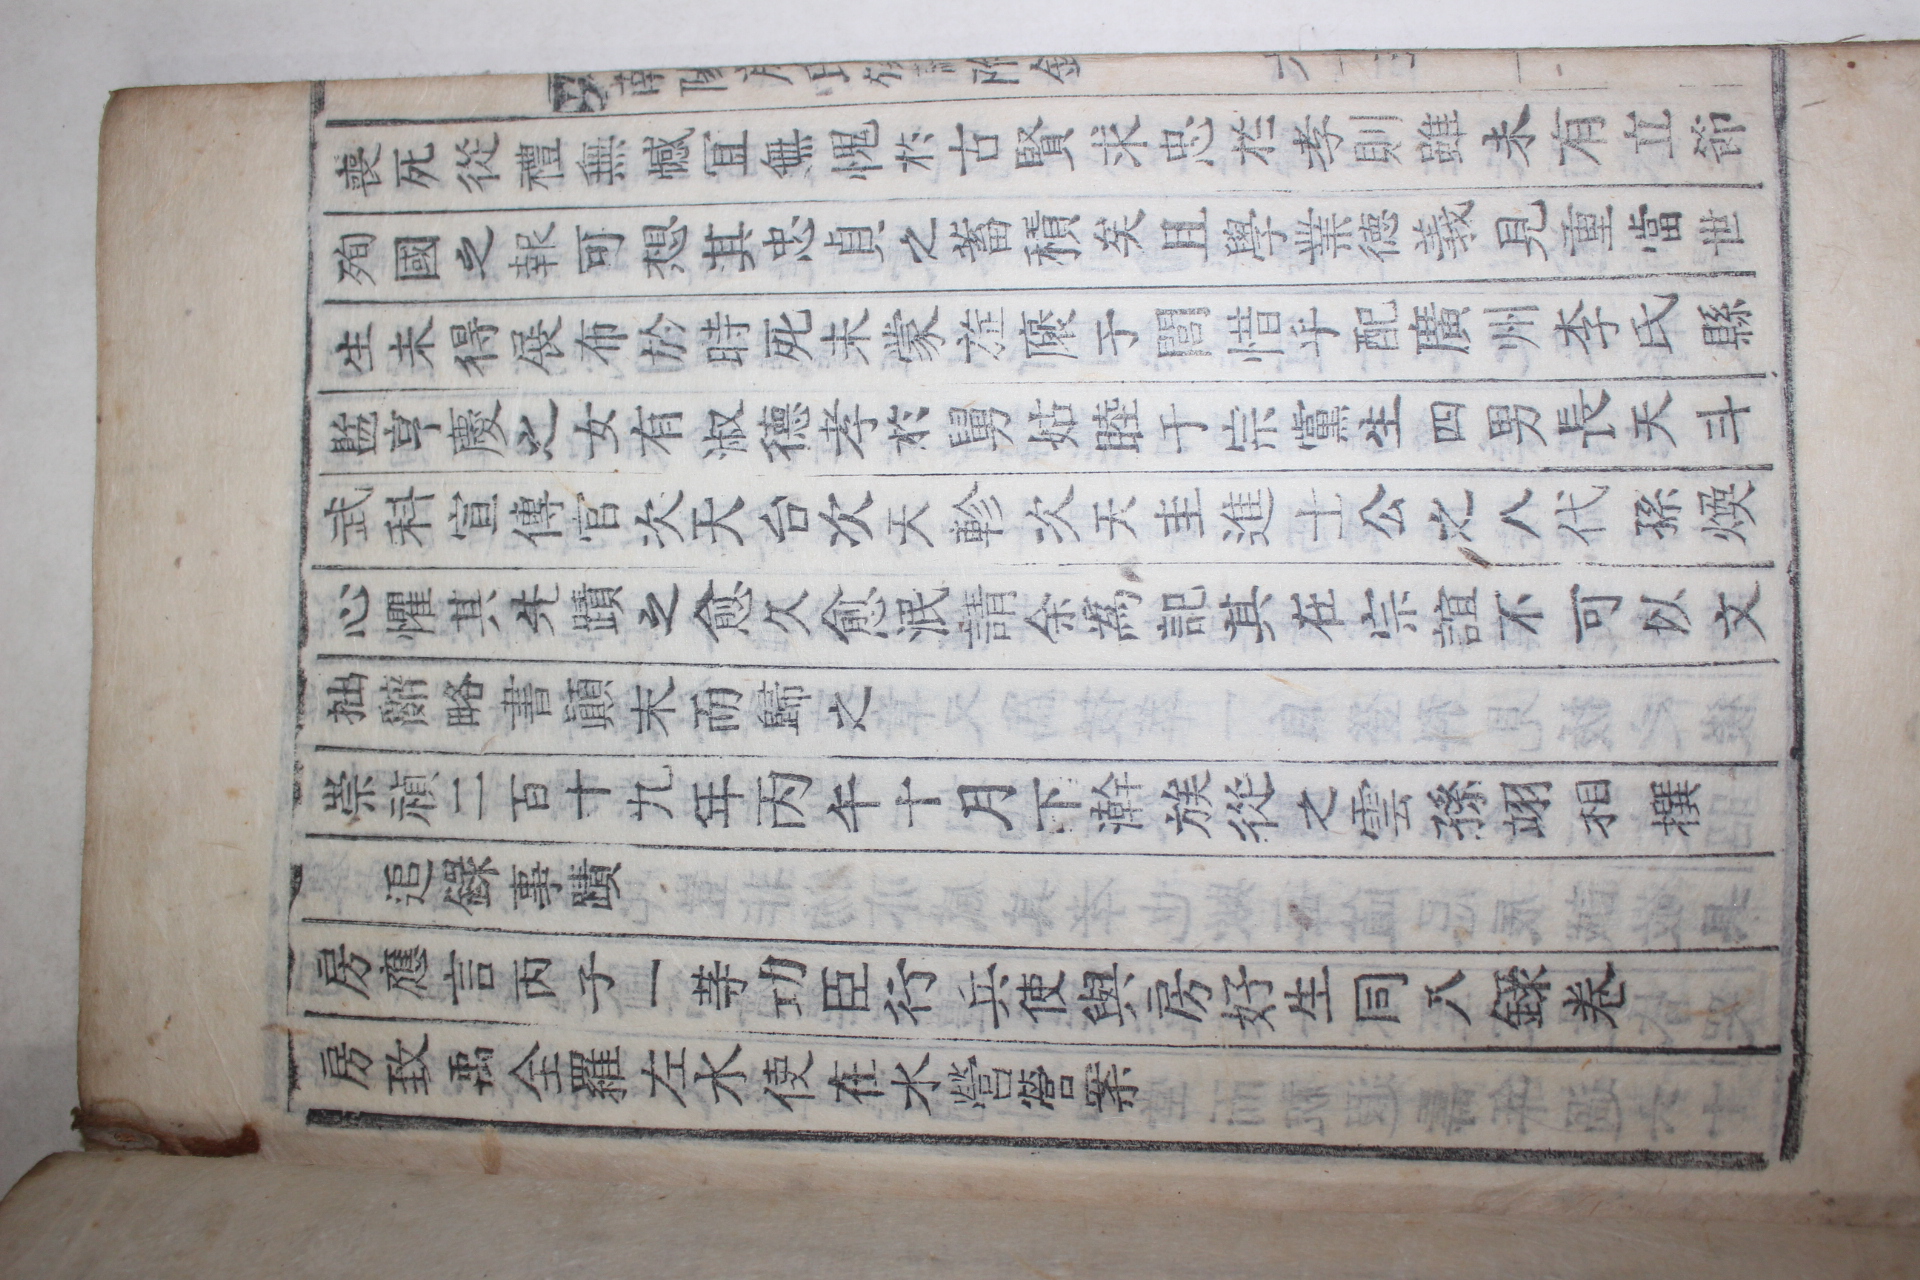 南陽房氏族譜附錄
喪死從禮無憾宜無愧於古賢求忠於孝則雖未有立節
殉國之報可想其忠貞之蓄積矣且學業德義見重當世
生未得展布於時死未蒙旌褒于閭惜乎配廣州李氏縣
監亨慶之女有淑德孝於舅姑睦于宗黨生四男長天斗
武科宣傳官次天台次天軫次天圭進士公之八代孫煥
心懼其先蹟之愈久愈泯請余為記其在宗誼不可以文
拙辭略書顚末而歸之
崇禎二百十九年丙午十月下澣族從之雲孫翊相撰
追錄事蹟
房應言丙子一等功臣行兵使與房好生同入錄卷
房致禹全羅左水使在水營營案